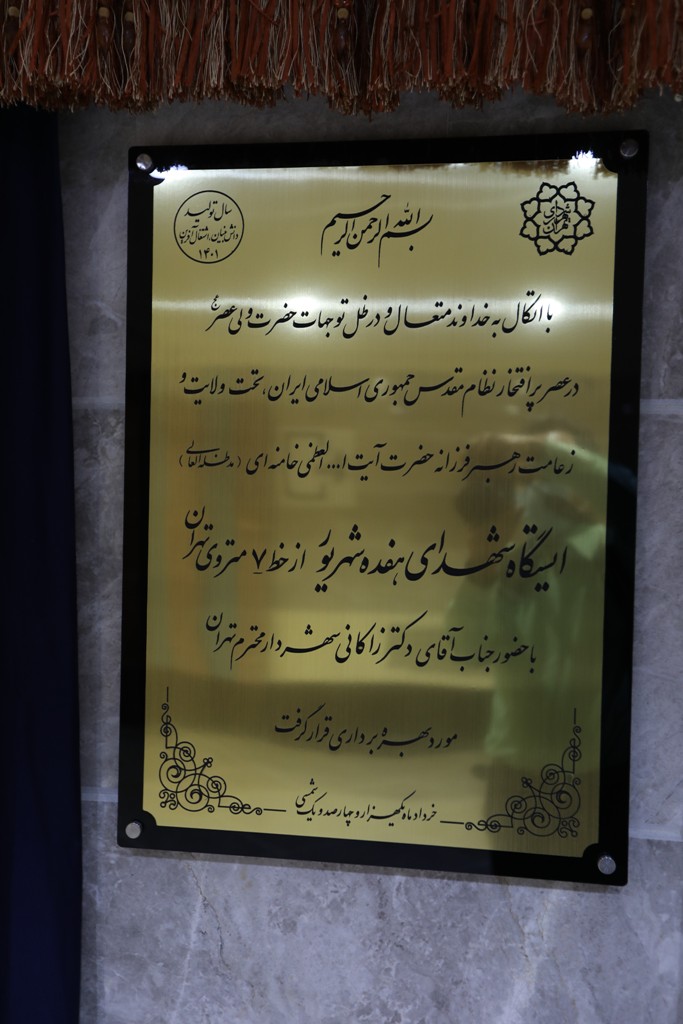 سال تولید
دانش بنیان، اشتغال آفرین
۱۴۰۱
بسم الله الرحمن الرحیم
شهرداری تهران
با اتکال به خداوند متعال و در ظل توجهات حضرت ولی عصر عج
در عصر پر افتخار نظام مقدس جمهوری اسلامی ایران، تحت ولایت و
زعامت رهبر فرزانه حضرت آیت ا... العظمی خامنه ای (مدظله العالی)
ایستگاه شهدای هفده شهریور از خط ۷ متروی تهران
با حضور جناب آقای دکتر زاکانی شهردار محترم تهران
مورد بهره برداری قرار گرفت
خرداد ماه یکهزار و چهارصد و یک شمسی